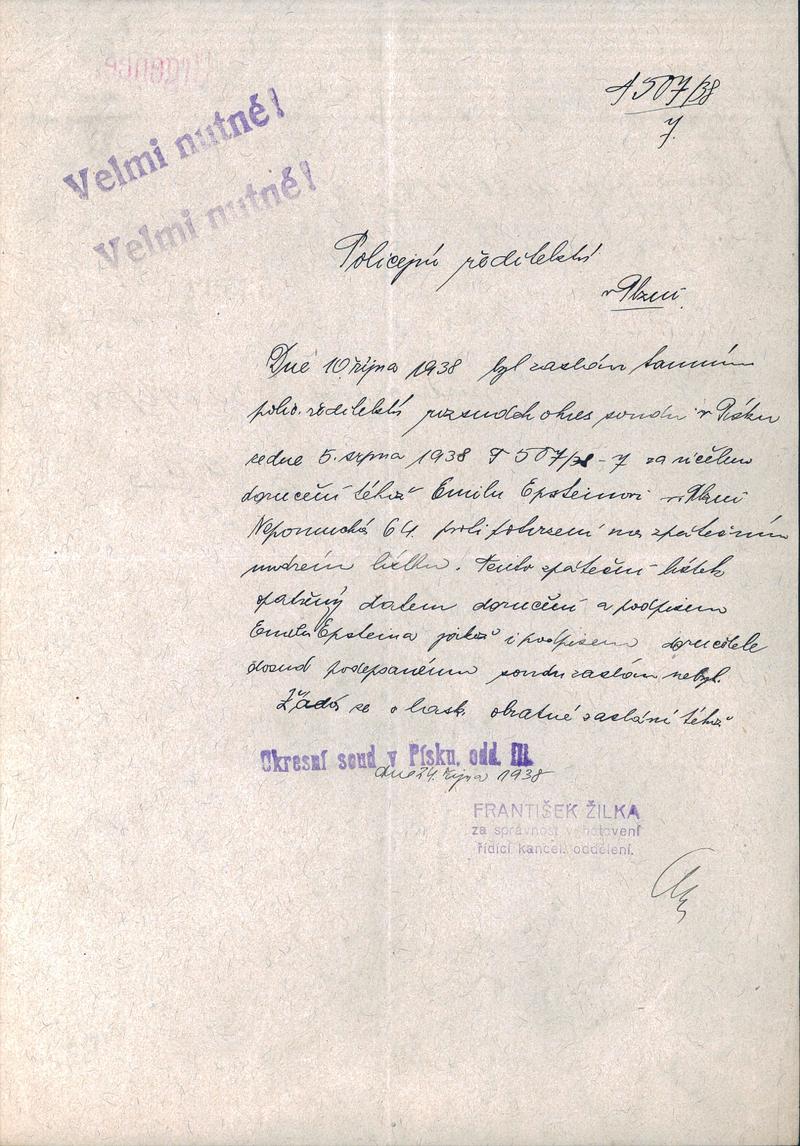 Urgence.
Velmi nutné!
Velmi nutné!
T 507/38
7.
Policejní ředitelství
v Plzni.
Dne 10 října 1938 byl zaslán tamním
polic. ředitelství rozsudek okres soudu v Písku
ze dne 5. srpna 1938 T 507/38-7 za účelem
doručení téhož Emilu Epsteinovi v Plzni
Nepomucká 64 proti potvrzení na zpátečním
modrém lístku. Tento zpáteční lístek
opatřený datem doručení a podpisem
Emila Epsteina jakož i podpisem doručitele
dosud podepsanému soudu zaslán nebyl.
Žádá se o lask. obratné zaslání téhož
Okresní soud v Písku, odd. III.
dne 24. října 1938
FRANTIŠEK ŽILKA
za správnost vyhotovení
řídící kancel. oddělení.